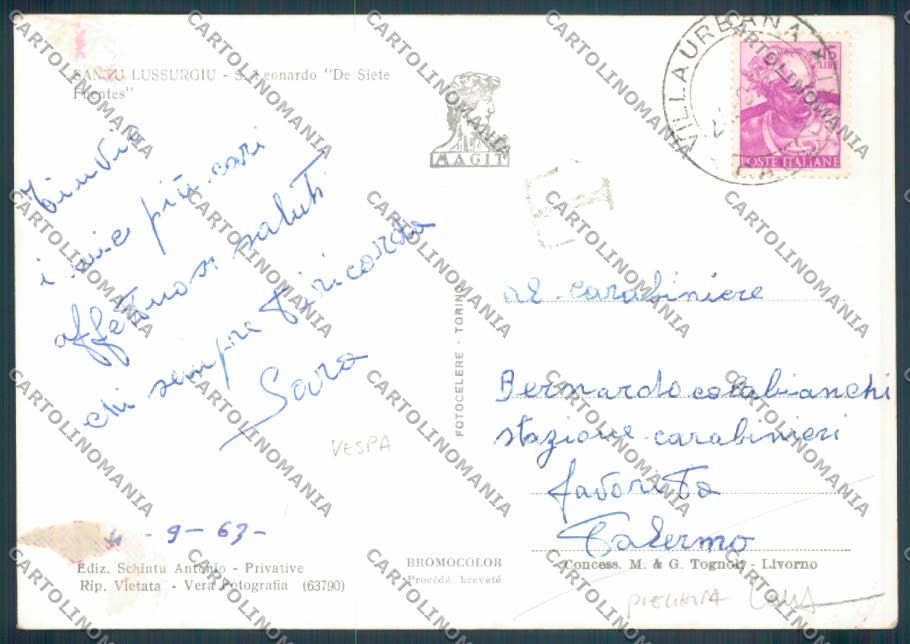 SANTU LUSSURGIU - S. Leonardo "De Siete
Fuentes"
MAGIT
VILLAURBANA
LIRE
POSTE ITALIANE
T
i miei più cari
affettuosi saluti
chi sempre ti ricorda
Sara
VESPA
- 9 - 63 -
Ediz. Schintu Antonio - Privative
Rip. Vietata - Vera Fotografia (63790)
BROMOCOLOR
Procédé breveté
FOTOCELERE - TORINO
al carabiniere
Bernardo colabianchi
stazione carabinieri
favorita
Palermo
Concess. M. & G. Tognoli - Livorno
PIEGHINA
CARTOLINOMANIA